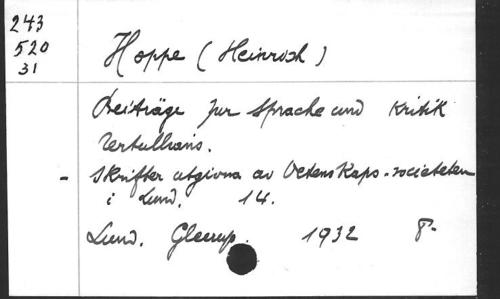 243
520
31
Hoppe (Heinrich)
Beiträge zur Sprache und Kritik
Tertullians.
- Skrifter utgivna av Vetenskaps-societeten
i Lund. 14.
Lund. Gleerup. 1932 8-